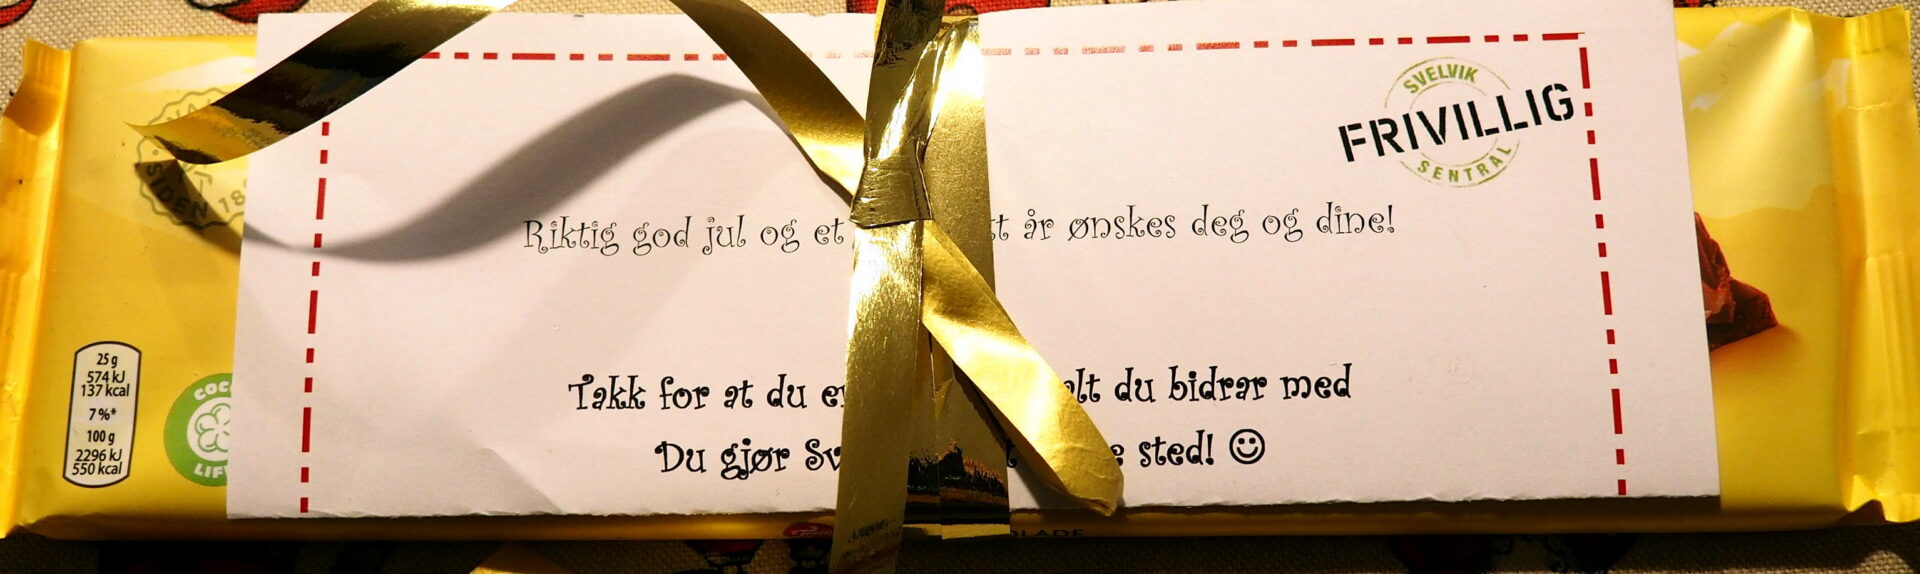 SVELVIK
FRIVILLIG
SENTRAL
Riktig god jul og et år ønskes deg og dine!
Takk for at du du bidrar med
Du gjør sted! ☺
SIDEN
25 g
574 kJ
137 kcal
7%*
100 g
2296 kJ
550 kcal